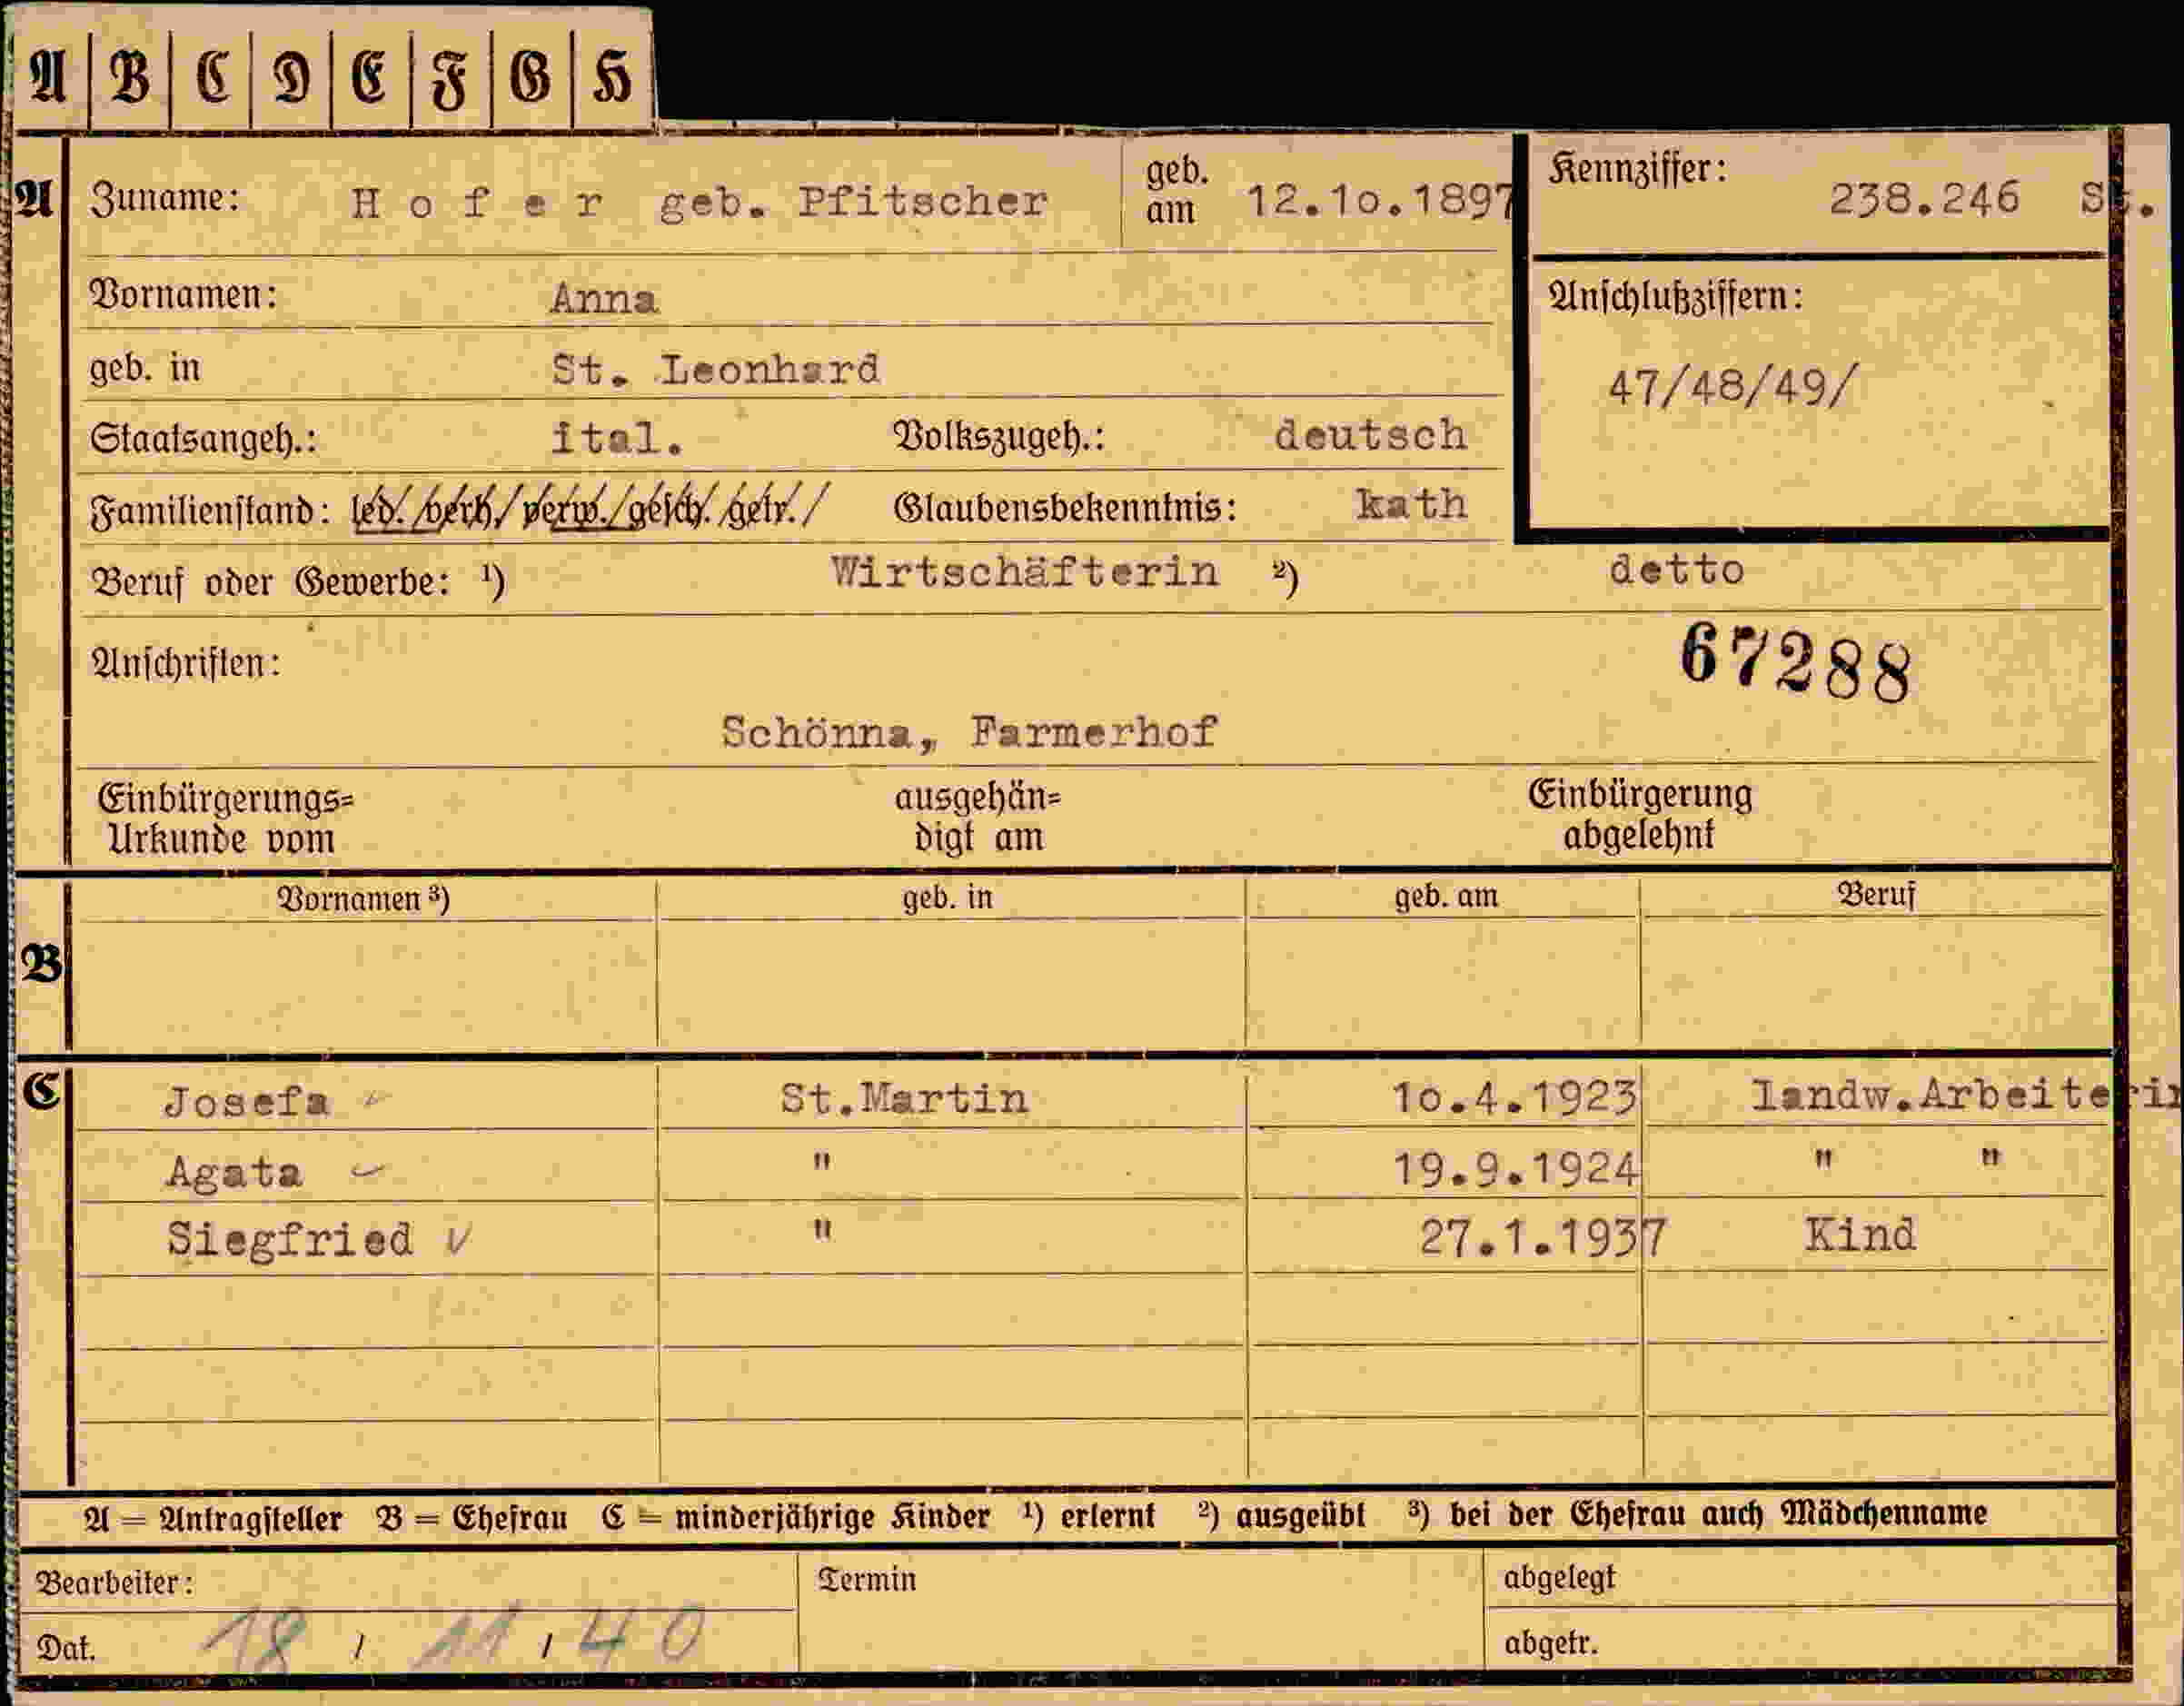 A B C D E F G H
A Zuname: Hofer geb. Pfitscher geb. am 12.10.1897 Kennziffer: 238.246 St.
Vornamen: Anna Anschlußziffern:
geb. in St. Leonhard 47/48/49/
Staatsangeh.: ital. Volkszugeh.: deutsch
Familienstand: led./verh./verw./gesch./getr./ Glaubensbekenntnis: kath
Beruf oder Gewerbe: ¹) Wirtschäfterin ²) detto
Anschriften: 67288
Schönna, Farmerhof
Einbürgerungs= ausgehän= Einbürgerung
Urkunde vom digt am abgelehnt
B Vornamen ³) geb. in geb. am Beruf
C Josefa St.Martin 10.4.1923 landw.Arbeiterin
Agata " 19.9.1924 " "
Siegfried " 27.1.1937 Kind
A = Antragsteller B = Ehefrau C = minderjährige Kinder ¹) erlernt ²) ausgeübt ³) bei der Ehefrau auch Mädchenname
Bearbeiter: Termin abgelegt
Dat. 18 / 11 / 40 abgetr.